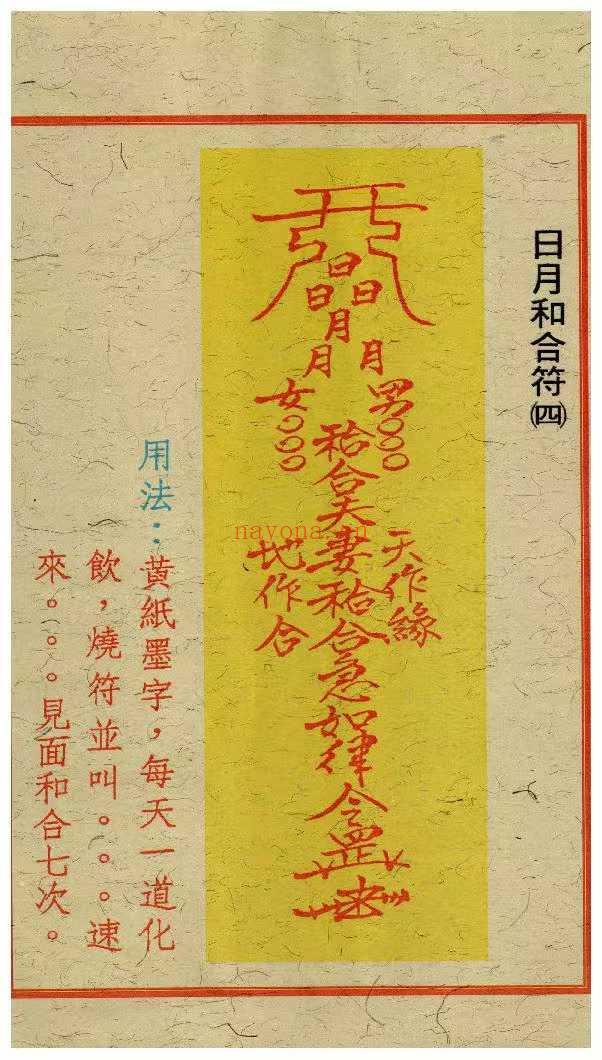 日月和合符㈣
日
日日
月
月月
男○○○
女○○○
天作緣
和合夫妻和合急如律令罡
地作合
用法：黃紙墨字，每天一道化
飲，燒符並叫。。。速
來。。。見面和合七次。
nayona.cn